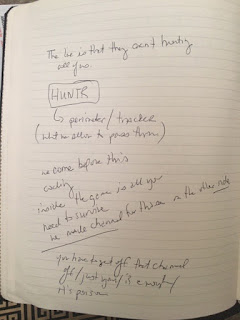 The lie is that they aren't hunting
all of us.
HUNTR
↳ perimeter / tracker
(what we allow to pass thru)
we come before this
coding
inside the game is all you
need to survive
we made channel for those on the other
you have to get off that channel
off / just your / is a
it's poison